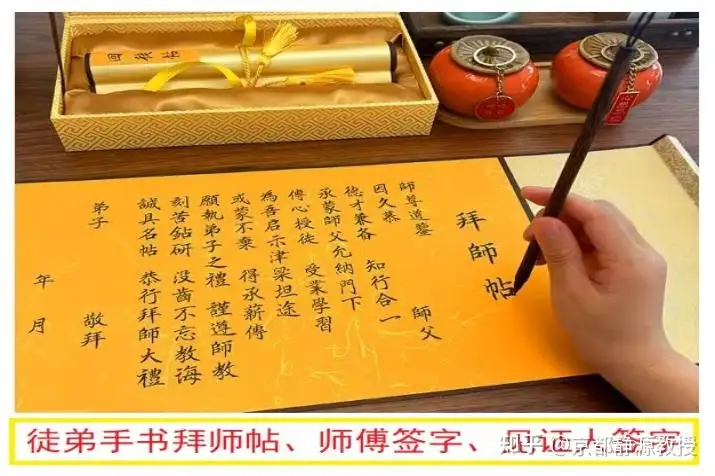 拜師帖
師尊道鑒
因久恭 師父
德才兼备 知行合一
承蒙師父允納門下
傳心授徒 受業學習
為吾启示津梁坦途
或蒙不棄 得承薪傳
願執弟子之禮 謹遵師教
刻苦鉆研 没齒不忘教诲
誠具名帖 恭行拜師大禮
弟子 敬拜
年 月
徒弟手书拜师帖、师傅签字、见证人签字
知乎 @京都静源教授